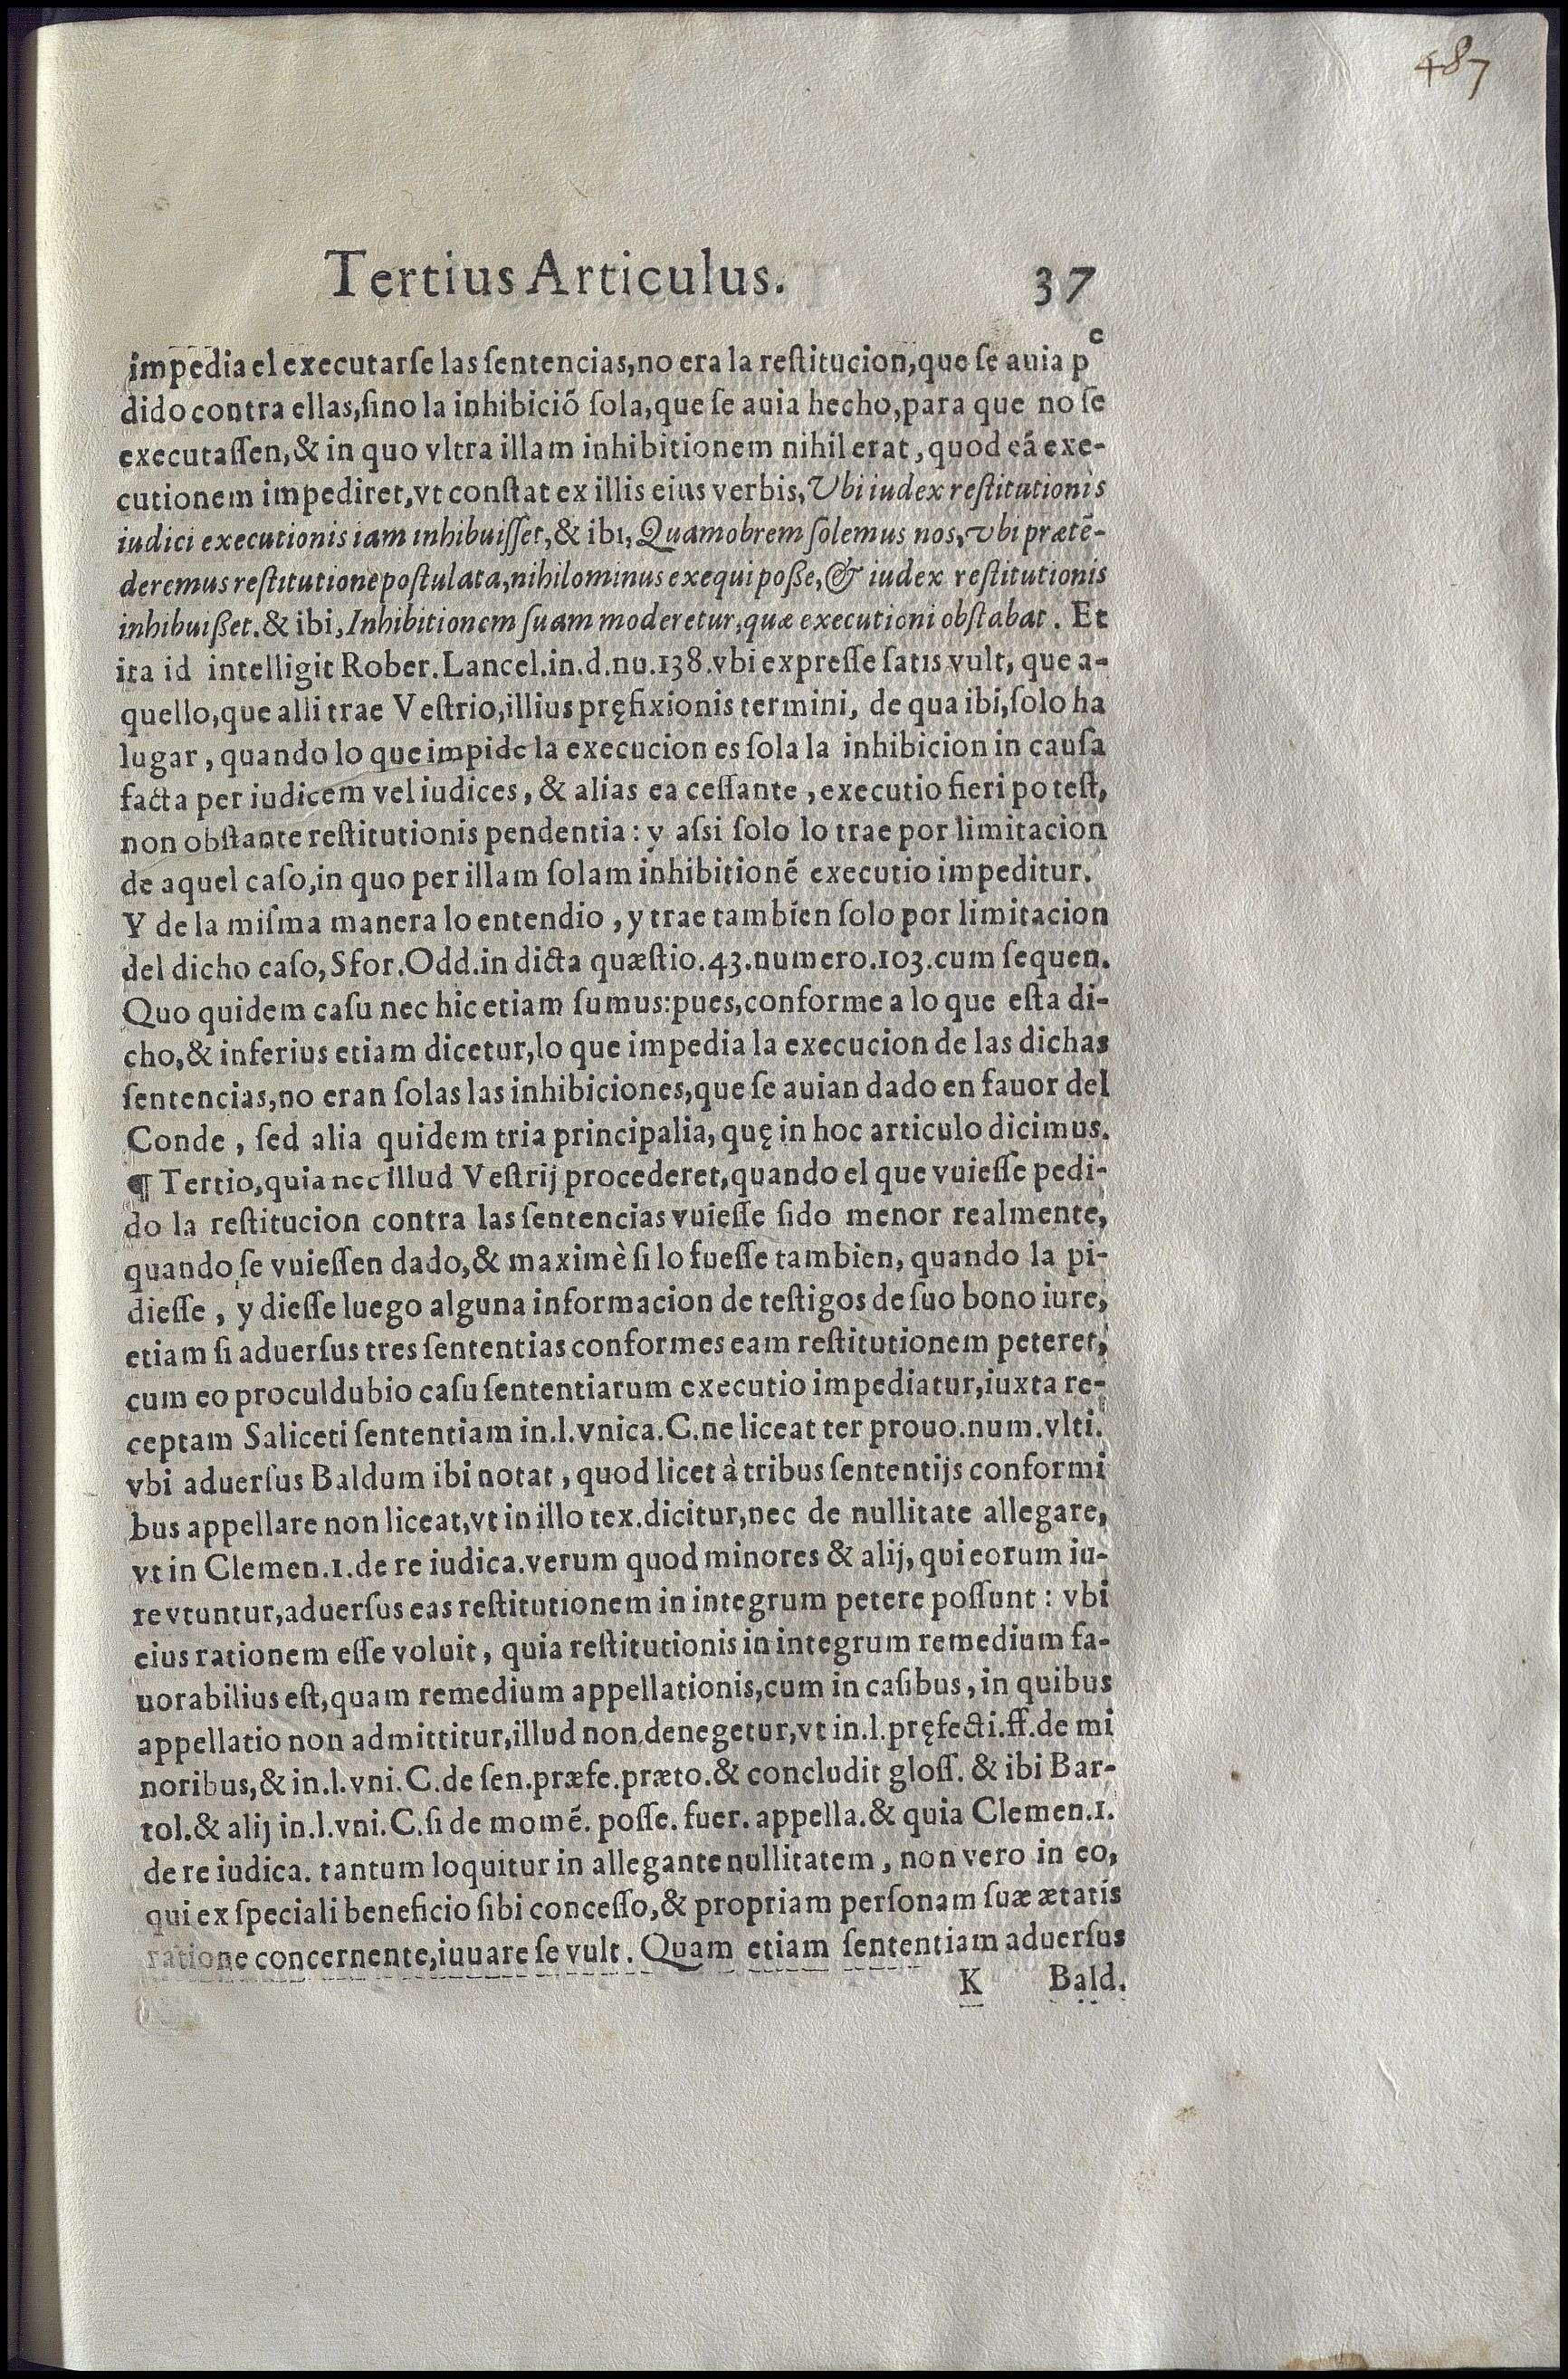 487
Tertius Articulus. 37
impedia el executarſe las ſentencias, no era la reſtitucion, que ſe auia pe
dido contra ellas, ſino la inhibiciõ ſola, que ſe auia hecho, para que no ſe
executaſſen, & in quo vltra illam inhibitionem nihil erat, quod eã exe-
cutionem impediret, vt conſtat ex illis eius verbis, Vbi iudex reſtitutionis
iudici executionis iam inhibuiſſet, & ibi, Quamobrem ſolemus nos, vbi prætẽ-
deremus reſtitutione poſtulata, nihilominus exequi poße, & iudex reſtitutionis
inhibuißet. & ibi, Inhibitionem ſuam moderetur, quæ executioni obſtabat. Et
ita id intelligit Rober. Lancel. in. d. nu. 138. vbi expreſſe ſatis vult, que a-
quello, que alli trae Veſtrio, illius pręfixionis termini, de qua ibi, ſolo ha
lugar, quando lo que impide la execucion es ſola la inhibicion in cauſa
facta per iudicem vel iudices, & alias ea ceſſante, executio fieri po teſt,
non obſtante reſtitutionis pendentia: y aſsi ſolo lo trae por limitacion
de aquel caſo, in quo per illam ſolam inhibitionẽ executio impeditur.
Y de la miſma manera lo entendio, y trae tambien ſolo por limitacion
del dicho caſo, Sfor. Odd. in dicta quæſtio. 43. numero. 103. cum ſequen.
Quo quidem caſu nec hic etiam ſumus: pues, conforme a lo que eſta di-
cho, & inferius etiam dicetur, lo que impedia la execucion de las dichas
ſentencias, no eran ſolas las inhibiciones, que ſe auian dado en fauor del
Conde, ſed alia quidem tria principalia, quę in hoc articulo dicimus.
¶ Tertio, quia nec illud Veſtrij procederet, quando el que vuieſſe pedi-
do la reſtitucion contra las ſentencias vuieſſe ſido menor realmente,
quando ſe vuieſſen dado, & maximè ſi lo fueſſe tambien, quando la pi-
dieſſe, y dieſſe luego alguna informacion de teſtigos de ſuo bono iure,
etiam ſi aduerſus tres ſententias conformes eam reſtitutionem peteret,
cum eo proculdubio caſu ſententiarum executio impediatur, iuxta re-
ceptam Saliceti ſententiam in. l. vnica. C. ne liceat ter prouo. num. vlti.
vbi aduerſus Baldum ibi notat, quod licet à tribus ſententijs conformi
bus appellare non liceat, vt in illo tex. dicitur, nec de nullitate allegare,
vt in Clemen. 1. de re iudica. verum quod minores & alij, qui eorum iu-
re vtuntur, aduerſus eas reſtitutionem in integrum petere poſſunt: vbi
eius rationem eſſe voluit, quia reſtitutionis in integrum remedium fa-
uorabilius eſt, quam remedium appellationis, cum in caſibus, in quibus
appellatio non admittitur, illud non denegetur, vt in. l. pręfecti. ff. de mi
noribus, & in. l. vni. C. de ſen. præfe. præto. & concludit gloſſ. & ibi Bar-
tol. & alij in. l. vni. C. ſi de momẽ. poſſe. fuer. appella. & quia Clemen. 1.
de re iudica. tantum loquitur in allegante nullitatem, non vero in eo,
qui ex ſpeciali beneficio ſibi conceſſo, & propriam perſonam ſuæ ætatis
ratione concernente, iuuare ſe vult. Quam etiam ſententiam aduerſus
K Bald.